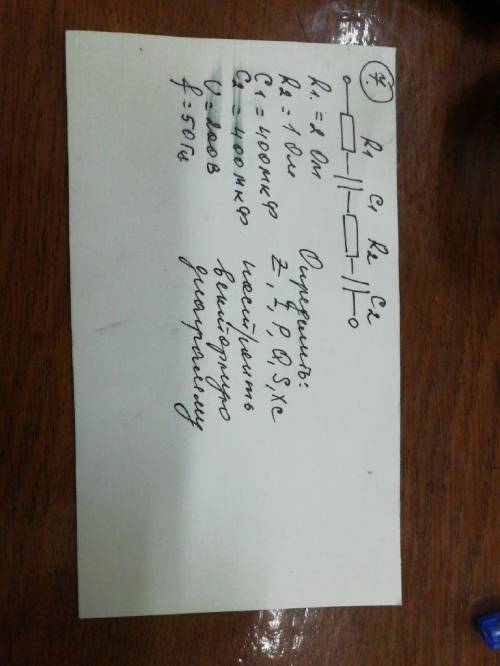 7.
R1 C1 R2 C2
R1 = 2 Ом
R2 = 1 Ом
C1 = 400 мкф
C2 = 400 мкф
U = 200 В
f = 50 Гц
Определить:
Z, I, P, Q, S, XC
построить
векторную
диаграмму